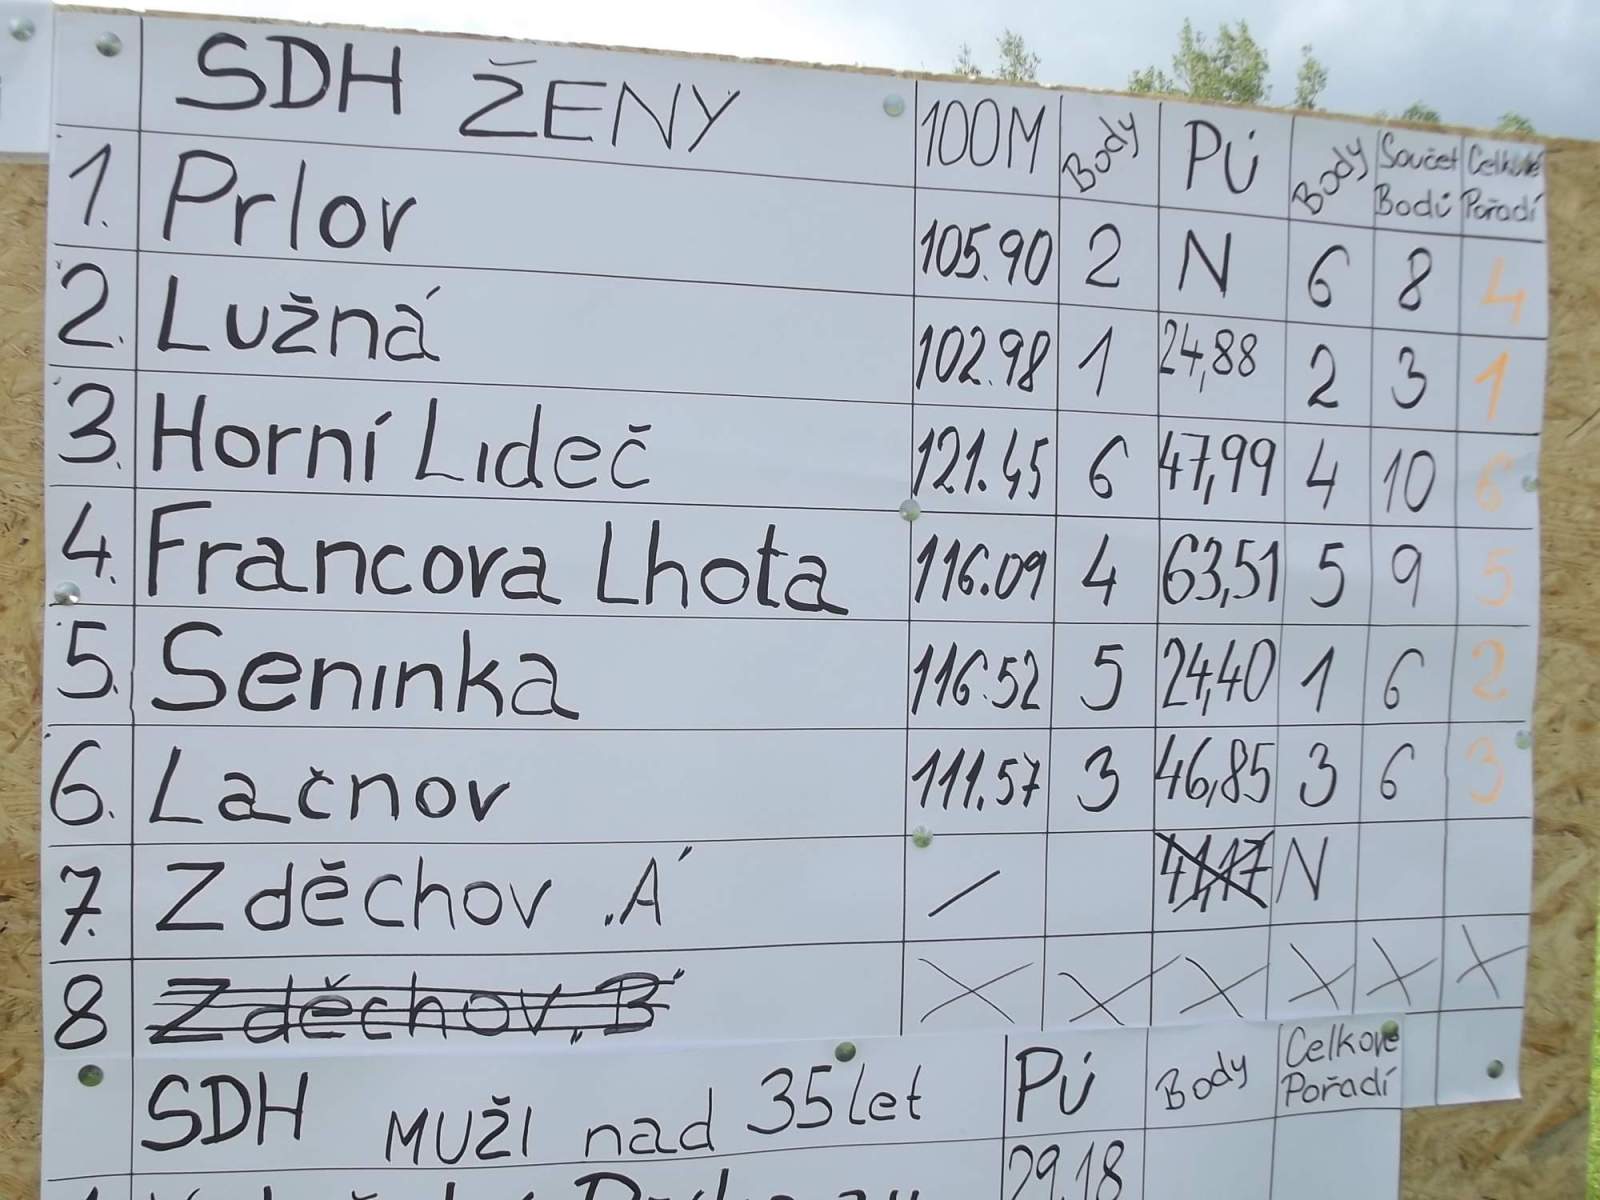 SDH ŽENY 100M Body PÚ Body Součet Bodů Celkové Pořadí
1. Prlov 105.90 2 N 6 8 4
2. Lužná 102.98 1 24,88 2 3 1
3. Horní Lideč 121.45 6 47,99 4 10 6
4. Francova Lhota 116.09 4 63,51 5 9 5
5. Seninka 116.52 5 24,40 1 6 2
6. Lačnov 111.57 3 46,85 3 6 3
7. Zděchov „A" / 41,17 N
8 Zděchov „B" X X X X X X
SDH MUŽI nad 35 let PÚ Body Celkové Pořadí
29,18